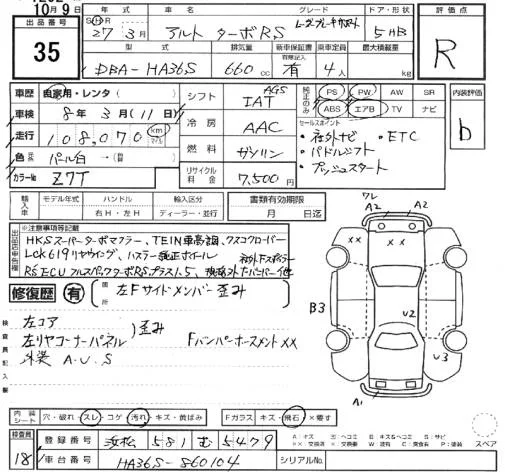 10月9日
出品番号
35
年式
S H R
27年3月
グレード
アルト ターボRS
レーダーブレーキサポート
ドア・形状
5HB
評価点
R
型式
DBA-HA36S
排気量
660cc
新車保証書
有
乗車定員
4人
最大積載量
kg
車歴 自家用・レンタ( )
車検 8年3月(11日)
走行 108,070 km マイル
色 パール白→(替色)
カラーNo Z7T
シフト AGS IAT
冷房 AAC
燃料 ガソリン
リサイクル料金 7,500円
純正のみ
PS PW AW SR
ABS エアB TV ナビ
セールスポイント
・社外ナビ ・ETC
・パドルシフト
・プッシュスタート
内装評価
b
輸入車
モデル年式
年
ハンドル
右H・左H
輸入区分
ディーラー・並行
書類有効期限
月 日迄
※注意事項等記載
HKSスーパーターボマフラー、TEIN車高調、クスコタワーバー
RSECUフルスペックターボRSプラス1.5、
修復歴 有
箇所
左Fサイドメンバー歪み
検査員記入欄
左コア
左リヤコーナーパネル
歪み
外装 A.U.S
FバンパーホースメントXX
ワレ
A2 A2
XX
B3
U2
U3
A1
内装シート
穴・破れ・スレ・コゲ・汚れ・キズ・黄ばみ
Fガラス
キズ・飛石・×要す
スペア
検査員
18
登録番号
浜松 581 む 5479
車台番号
HA36S-860104
シリアルNo.